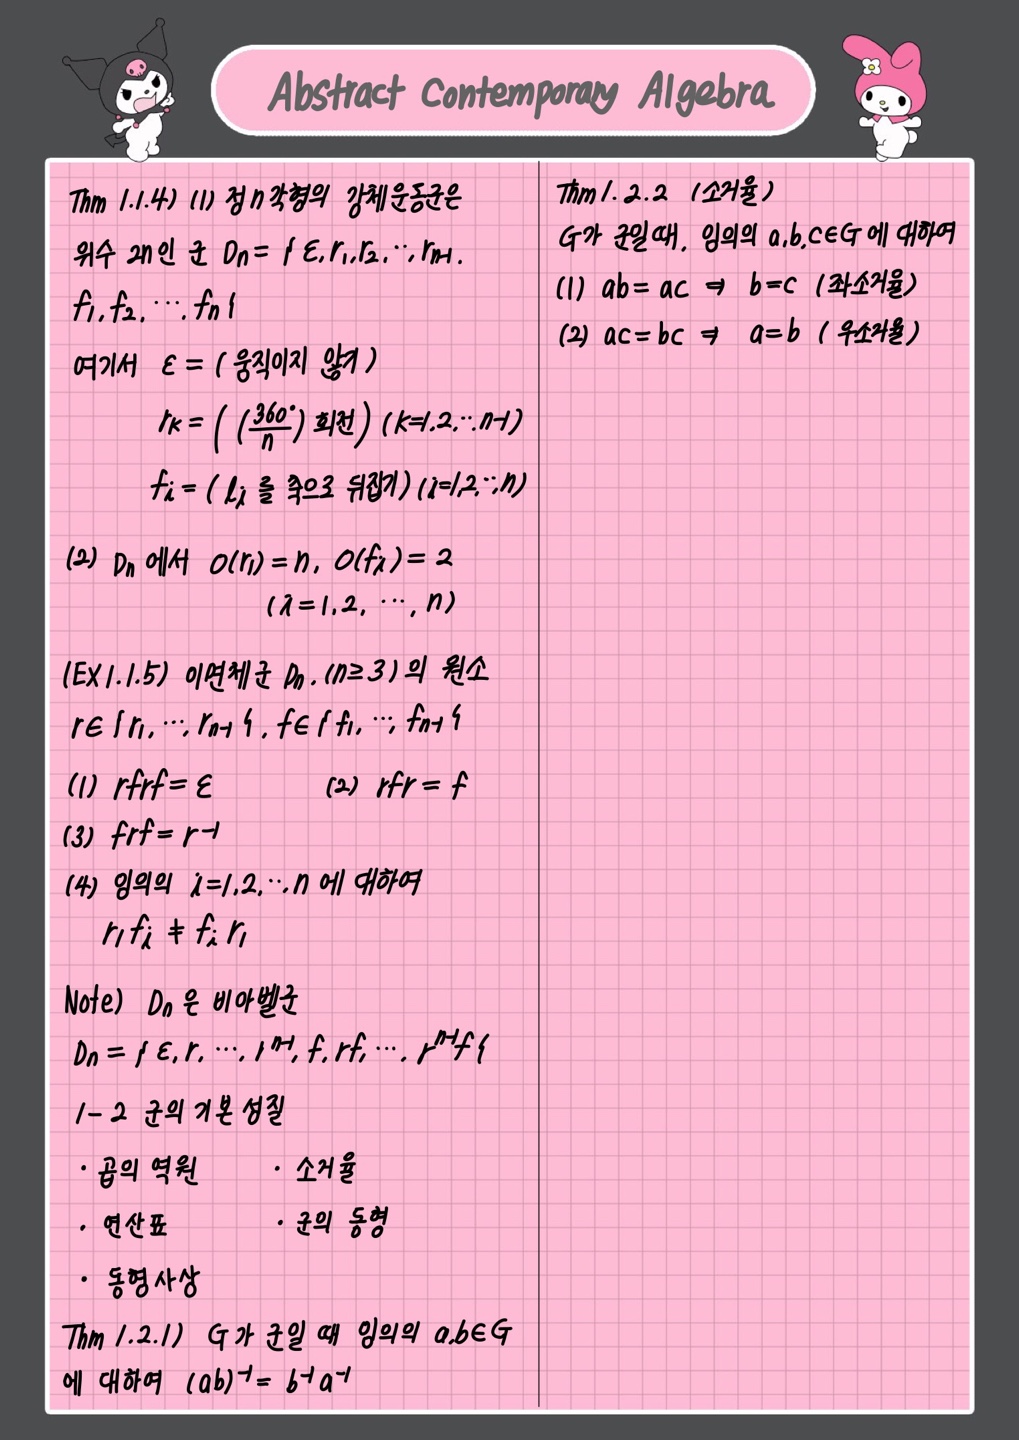 Abstract Contemporary Algebra
Thm 1.1.4) (1) 정n각형의 강체운동군은
위수 2n인 군 Dn = { ε, r₁, r₂, ⋯, rₙ₋₁,
f₁, f₂, ⋯, fₙ }
여기서 ε = (움직이지 않기)
rₖ = ((360°/n) 회전) (k=1,2,⋯,n-1)
fᵢ = (lᵢ를 축으로 뒤집기) (i=1,2,⋯,n)
(2) Dn에서 O(r₁) = n, O(fᵢ) = 2
(i=1,2, ⋯, n)
(EX1.1.5) 이면체군 Dn, (n≥3)의 원소
r∈{r₁, ⋯, rₙ₋₁}, f∈{f₁, ⋯, fₙ₋₁}
(1) rfrf = ε (2) rfr = f
(3) frf = r⁻¹
(4) 임의의 i=1,2,⋯,n에 대하여
r₁fᵢ ≠ fᵢr₁
Note) Dn은 비아벨군
Dn = { ε, r, ⋯, rⁿ⁻¹, f, rf, ⋯, rⁿ⁻¹f }
1-2 군의 기본성질
· 곱의 역원 · 소거율
· 연산표 · 군의 동형
· 동형사상
Thm 1.2.1) G가 군일 때 임의의 a,b∈G
에 대하여 (ab)⁻¹ = b⁻¹a⁻¹
Thm 1.2.2 (소거율)
G가 군일때, 임의의 a,b,c∈G에 대하여
(1) ab = ac ⇒ b=c (좌소거율)
(2) ac = bc ⇒ a=b (우소거율)